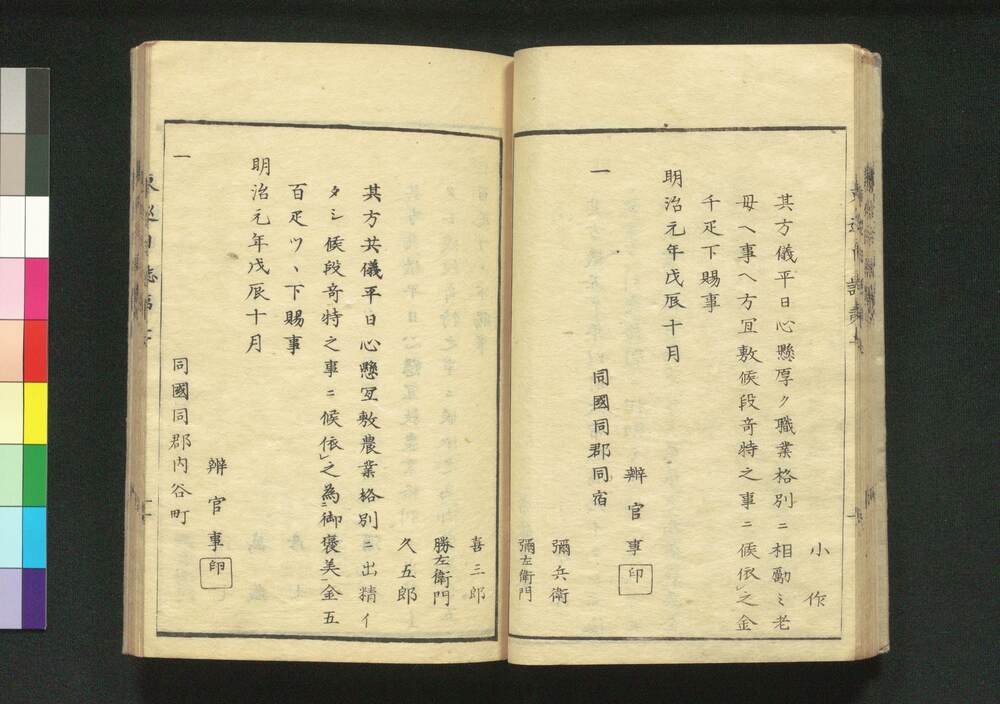 小作
其方儀平日心懸厚ク職業格別ニ相勵ミ老
毋ヘ事ヘ方宜敷候段竒特之事ニ候依之金
千疋下賜事
明治元年戊辰十月
辨官事印
一 同國同郡同宿
彌兵衛
彌左衛門
喜三郎
勝左衛門
久五郎
其方共儀平日心懸宜敷農業格別ニ出精イ
タシ候段竒特之事ニ候依之為御褒美金五
百疋ツヽ下賜事
明治元年戊辰十月
辨官事印
一 同國同郡内谷町